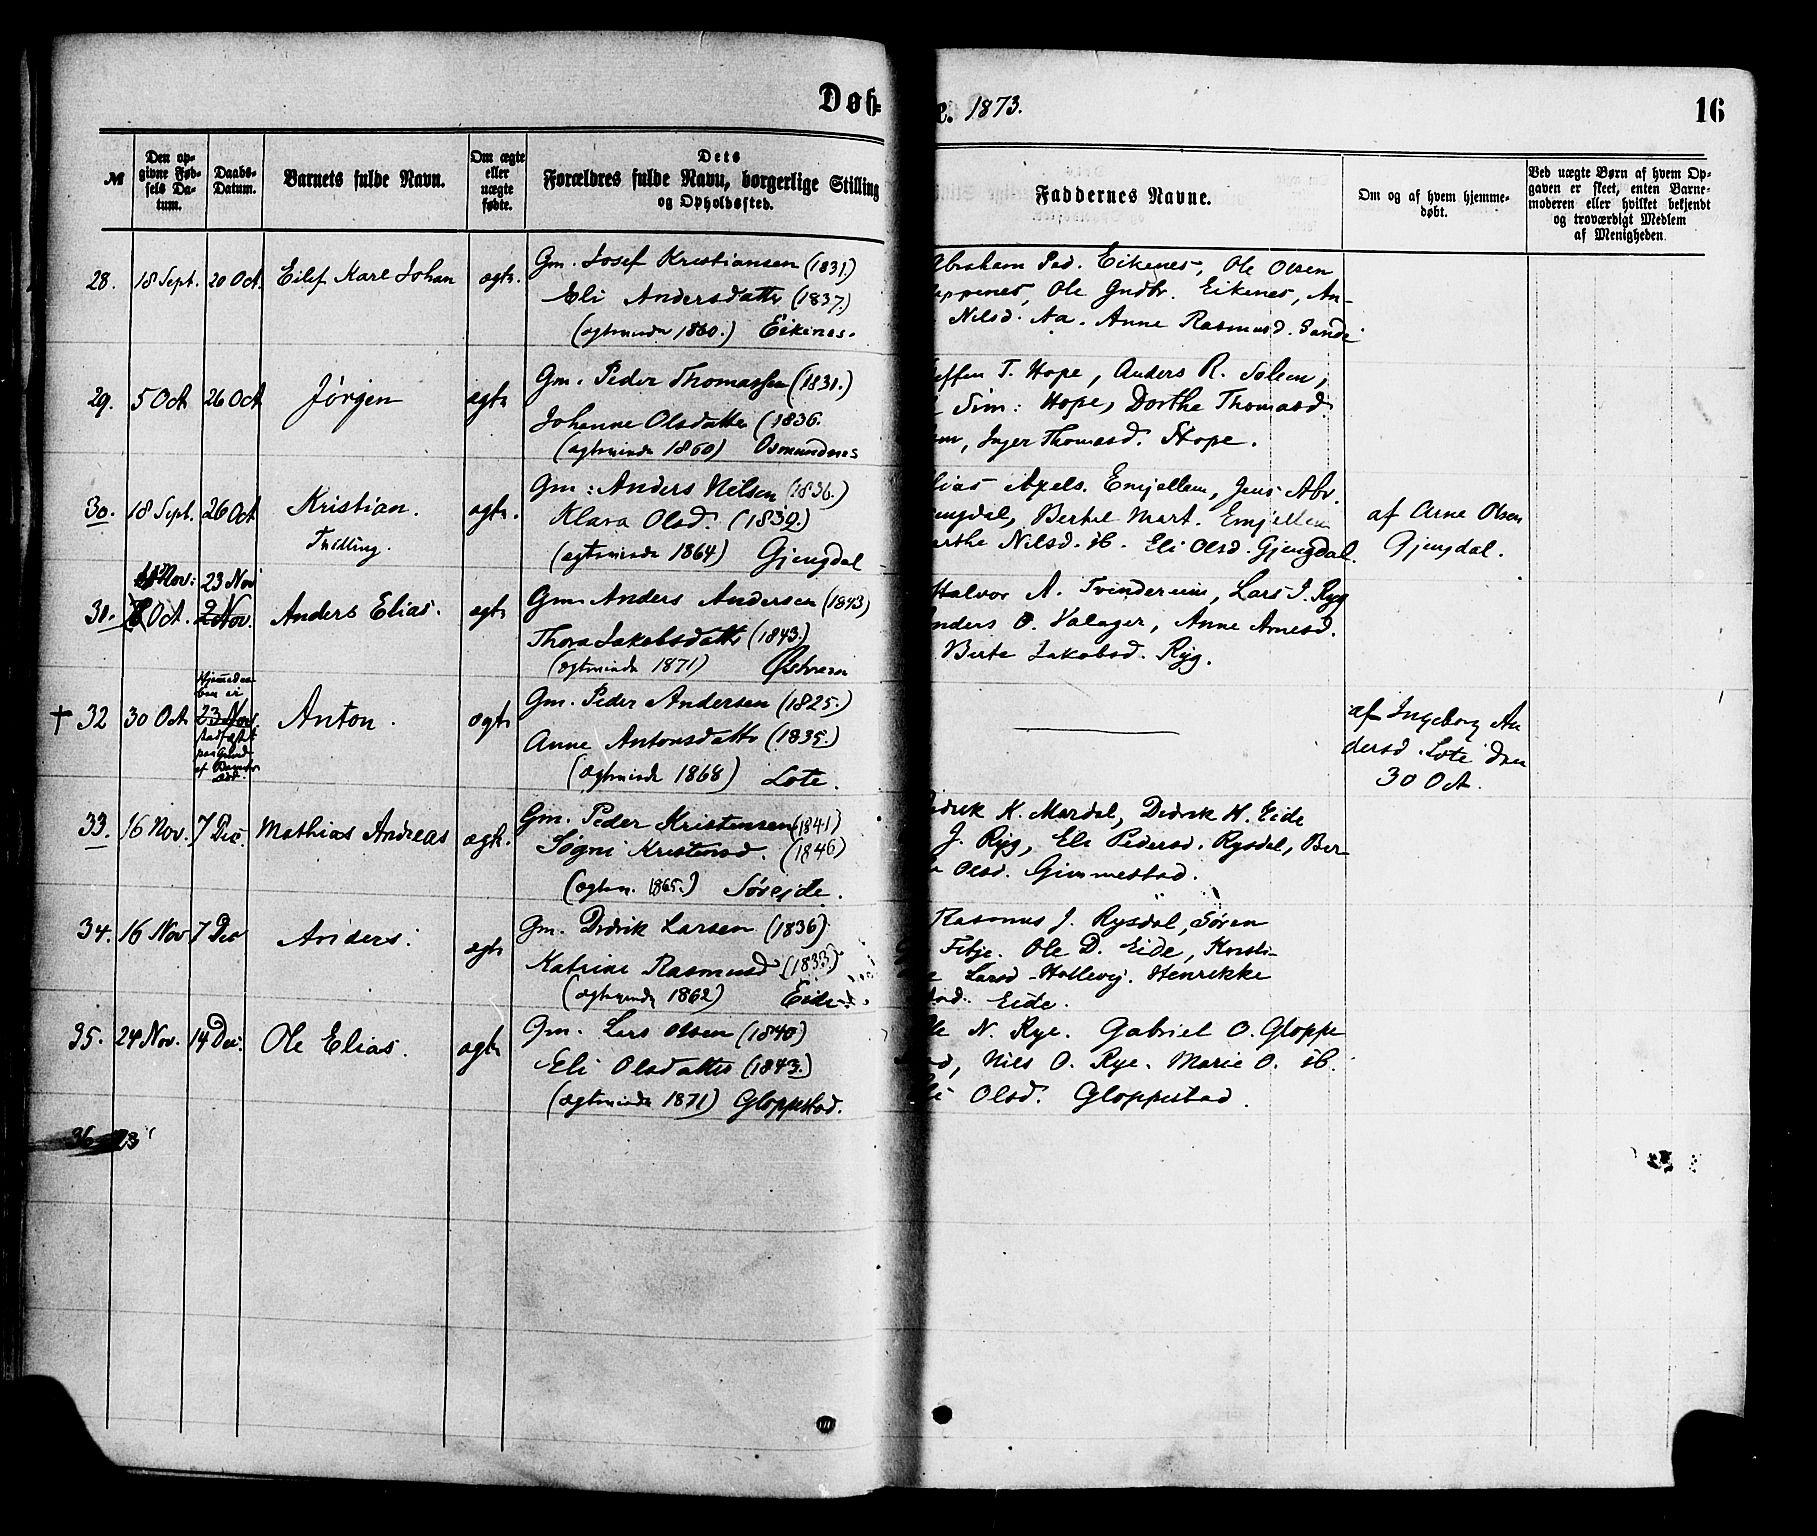 Døb- e. 1873. 16
№
Den op-
givne Fød-
sels Da-
tum.
Daabs-
Datum.
Barnets fulde Navn.
Om ægte
eller
uægte
fødte.
Dets
Forældres fulde Navn, borgerlige Stilling
og Opholdssted.
Faddernes Navne.
Om og af hvem hjemme-
døbt.
Ved uægte Børn af hvem Op-
gaven er skeet, enten Barne-
moderen eller hvilket bekjendt
og troværdigt Medlem
af Menigheden.
28. 18 Sept. 20 Oct. Eilef Karl Johan ægte.
Gm. Josef Kristiansen (1831)
Eli Andersdatter (1837)
(ægteviede 1860.) Eikenes.
Abraham Ped. Eikenes, Ole Olsen
Ole Gudbr. Eikenes, An-
Nilsd. Aa. Anne Rasmusd. Sande
29. 5 Oct 26 Oct Jørgen ægte
Gm. Peder Thomassen (1831.)
Johanne Olsdatter (1836.
(ægteviede 1860) Osmundnes
effen T. Hope, Anders R. Solem,
Sim: Hope, Dorthe Thomasd.
Inger Thomasd. Hope.
30. 18 Sept. 26 Oct Kristian.
Tvilling. ægte.
Gm: Anders Nilsen (1836.)
Klara Olsd. (1839.)
(ægteviede 1864) Gjengdal
lias Axels. Emjellem, Jens Abr.
engdal, Bertel Mart. Emjellem
arthe Nilsd. ib. Eli Olsd. Gjengdal.
af Arne Olsen
Gjengdal.
Nov: 23 Nov
31. 8 Oct. 2 Nov. Anders Elias. ægte
Gm Anders Andersen (1843)
Thora Jakobsdatter (1843.)
(ægteviede 1871)
Halvor A. Tvindereim, Lars J. Ryg
nders O. Valager, Anne Arnesd.
Birte Jakobsd. Ryg.
† 32 30 Oct
Hjemmedaa-
ben er
23 Nov.
stadfæstet
Anton. ægte
Gm. Peder Andersen (1825.)
Anne Antonsdatter (1835.)
(ægteviede 1868) Lote.
af Ingeborg An
dersd. Lote den
30 Oct.
33. 16 Nov. 7 Dec. Mathias Andreas ægte.
Gm. Peder Kristensen (1841)
Søgni Kristensd. (1846)
(ægtev. 1865.) Søreide.
idrik K. Mardal, Didrik H. Eide
J. Ryg, Eli Pedersd. Rysdal, Ber-
Olsd. Gimmestad.
34. 16 Nov 7 Dec Anders. ægte
Gm. Didrik Larsen (1836)
Katrine Rasmusd (1833)
(ægteviede 1862) Eide
Rasmus J. Rysdal, Søren
Fitje. Ole D. Eide, Kersti-
Larsd. Hollevej. Henrikke
Eide.
35. 24 Nov. 14 Dec. Ole Elias. ægte
Gm. Lars Olsen (1840)
Eli Olsdatter (1843.)
(ægteviede 1871) Gloppestad.
le N. Rye. Gabriel O. Gloppe
ad, Nils O. Rye. Marie O. ib.
Olsd. Gloppestad.
36 23